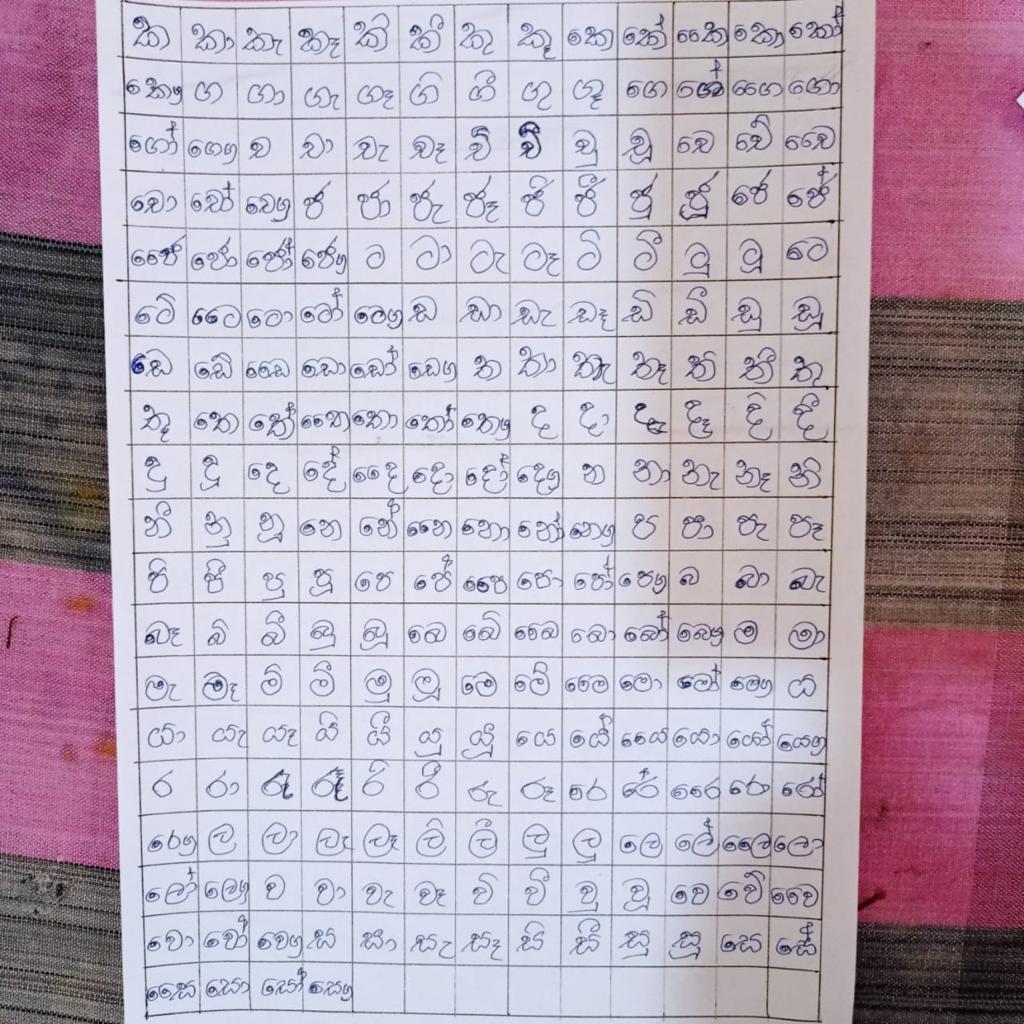 ක කා කැ කෑ කි කී කු කූ කෙ කේ කෛ කො කෝ
කෞ ග ගා ගැ ගෑ ගි ගී ගු ගූ ගෙ ගේ ගෛ ගො
ගෝ ගෞ ච චා චැ චෑ චි චී චු චූ චෙ චේ චෛ
චො චෝ චෞ ජ ජා ජැ ජෑ ජි ජී ජු ජූ ජෙ ජේ
ජෛ ජො ජෝ ජෞ ට ටා ටැ ටෑ ටි ටී ටු ටූ ටෙ
ටේ ටෛ ටො ටෝ ටෞ ඩ ඩා ඩැ ඩෑ ඩි ඩී ඩු ඩූ
ඩෙ ඩේ ඩෛ ඩො ඩෝ ඩෞ ත තා තැ තෑ ති තී තු
තූ තෙ තේ තෛ තො තෝ තෞ ද දා දැ දෑ දි දී
දු දූ දෙ දේ දෛ දො දෝ දෞ න නා නැ නෑ නි
නී නු නූ නෙ නේ නෛ නො නෝ නෞ ප පා පැ පෑ
පි පී පු පූ පෙ පේ පෛ පො පෝ පෞ බ බා බැ
බෑ බි බී බු බූ බෙ බේ බෛ බො බෝ බෞ ම මා
මැ මෑ මි මී මු මූ මෙ මේ මෛ මො මෝ මෞ ය
යා යැ යෑ යි යී යු යූ යෙ යේ යෛ යො යෝ යෞ
ර රා රැ රෑ රි රී රු රූ රෙ රේ රෛ රො රෝ
රෞ ල ලා ලැ ලෑ ලි ලී ලු ලූ ලෙ ලේ ලෛ ලො
ලෝ ලෞ ව වා වැ වෑ වි වී වු වූ වෙ වේ වෛ
වො වෝ වෞ ස සා සැ සෑ සි සී සු සූ සෙ සේ
සෛ සො සෝ සෞ